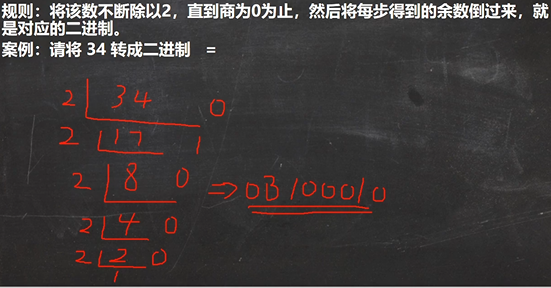 规则：将该数不断除以2，直到商为0为止，然后将每步得到的余数倒过来，就
是对应的二进制。
案例：请将 34 转成二进制 =
2 34 0
2 17 1
2 8 0 => 0B100010
2 4 0
2 2 0
1